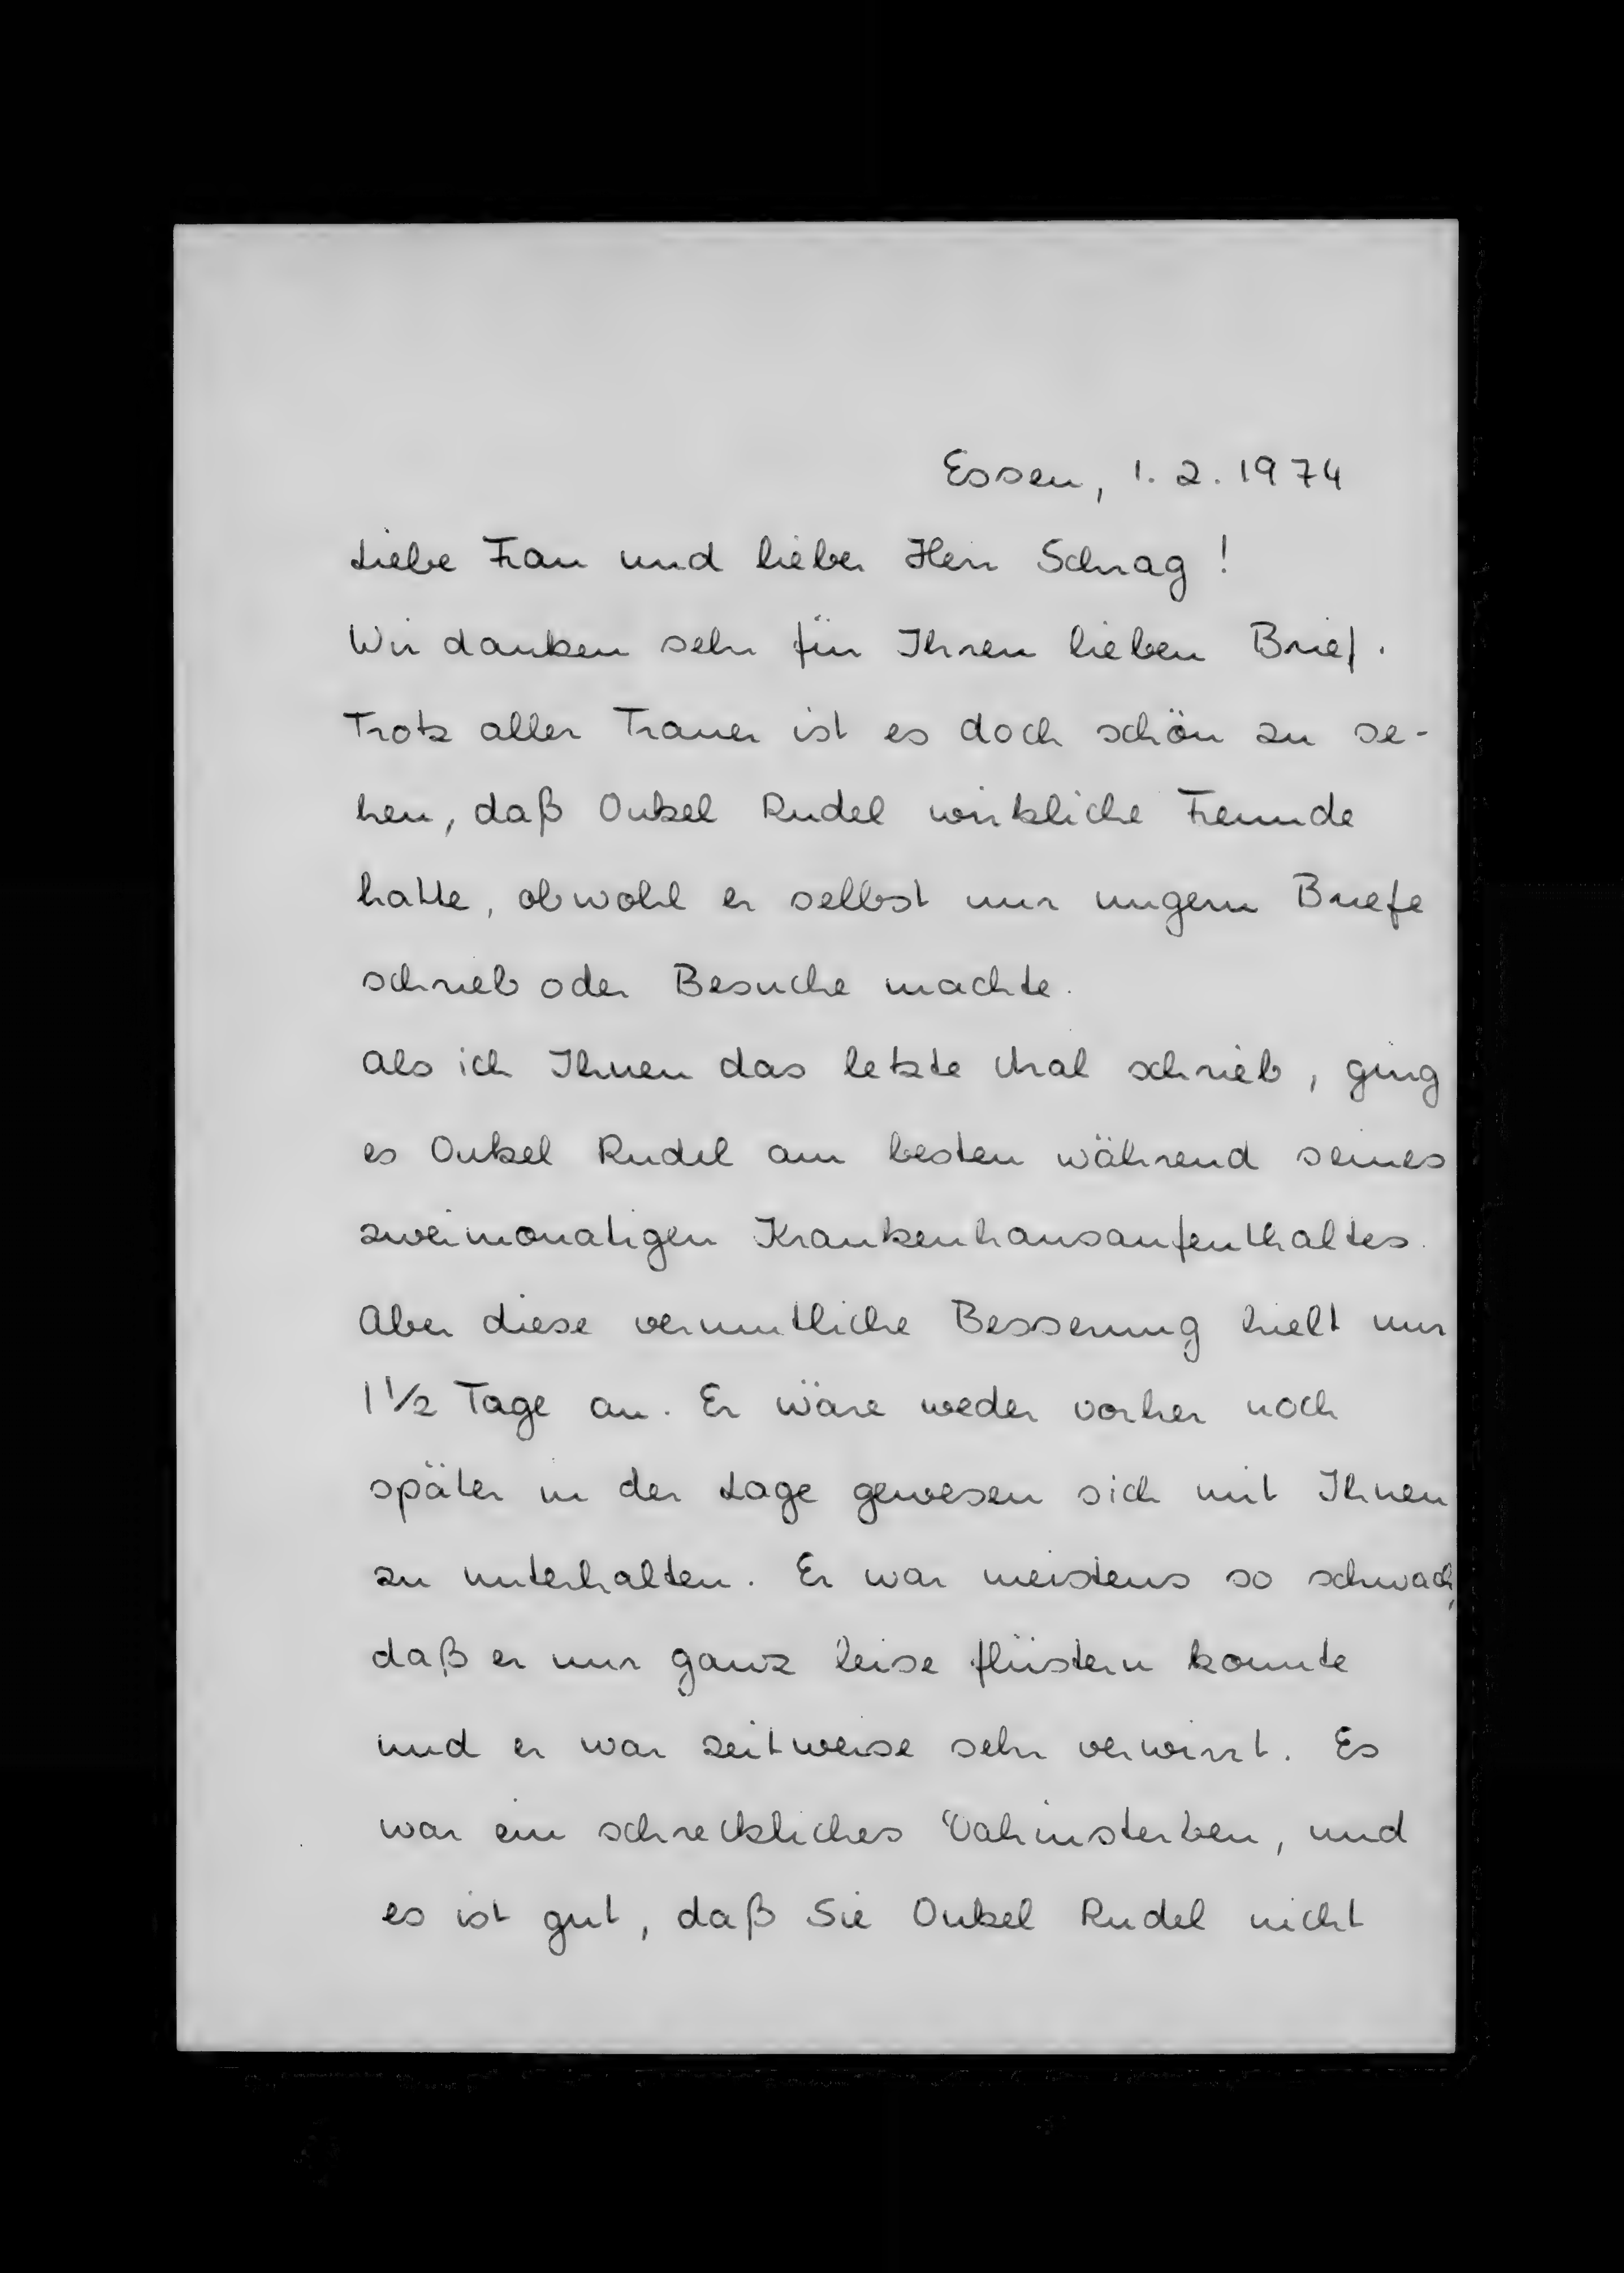 Essen, 1. 2. 1974
Liebe Frau und lieber Herr Schrag !
Wir danken sehr für Ihren lieben Brief.
Trotz aller Trauer ist es doch schön zu se-
hen, daß Onkel Rudel wirkliche Freunde
hatte, obwohl er selbst nur ungern Briefe
schrieb oder Besuche machte.
Als ich Ihnen das letzte Mal schrieb, ging
es Onkel Rudel am besten während seines
zweimonatigen Krankenhausaufenthaltes.
Aber diese vermutliche Besserung hielt nur
1 1/2 Tage an. Er wäre weder vorher noch
später in der Lage gewesen sich mit Ihnen
zu unterhalten. Er war meistens so schwach,
daß er nur ganz leise flüstern konnte
und er war zeitweise sehr verwirrt. Es
war ein schreckliches Dahinsterben, und
es ist gut, daß Sie Onkel Rudel nicht